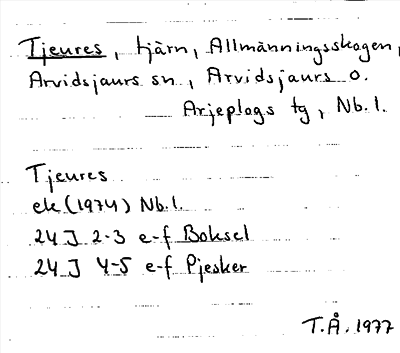 Tjeures, tjärn, Allmänningsskogen,
Arvidsjaurs sn, Arvidsjaurs o.
Arjeplogs tg, Nb. l.
Tjeures
ek (1974) Nb. l.
24 J 2-3 e-f Boksel
24 J 4-5 e-f Pjesker
T.Å. 1977